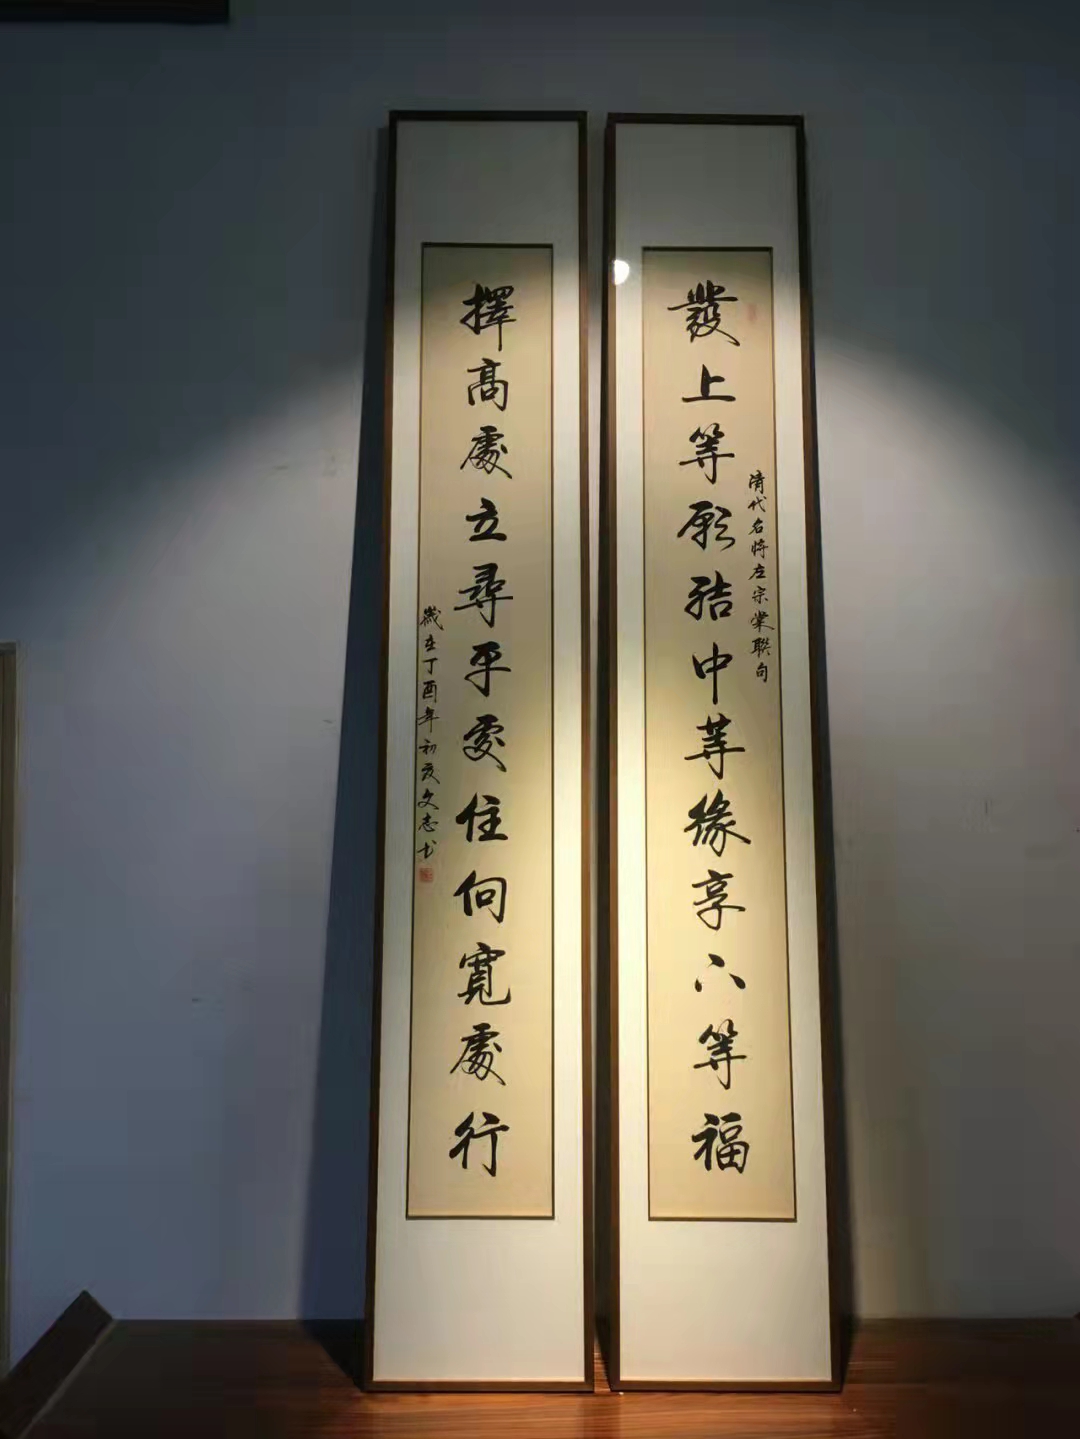 發上等願結中等緣享下等福
清代名將左宗棠聯句
擇高處立尋平處住向寬處行
歲在丁酉年初夏文志书